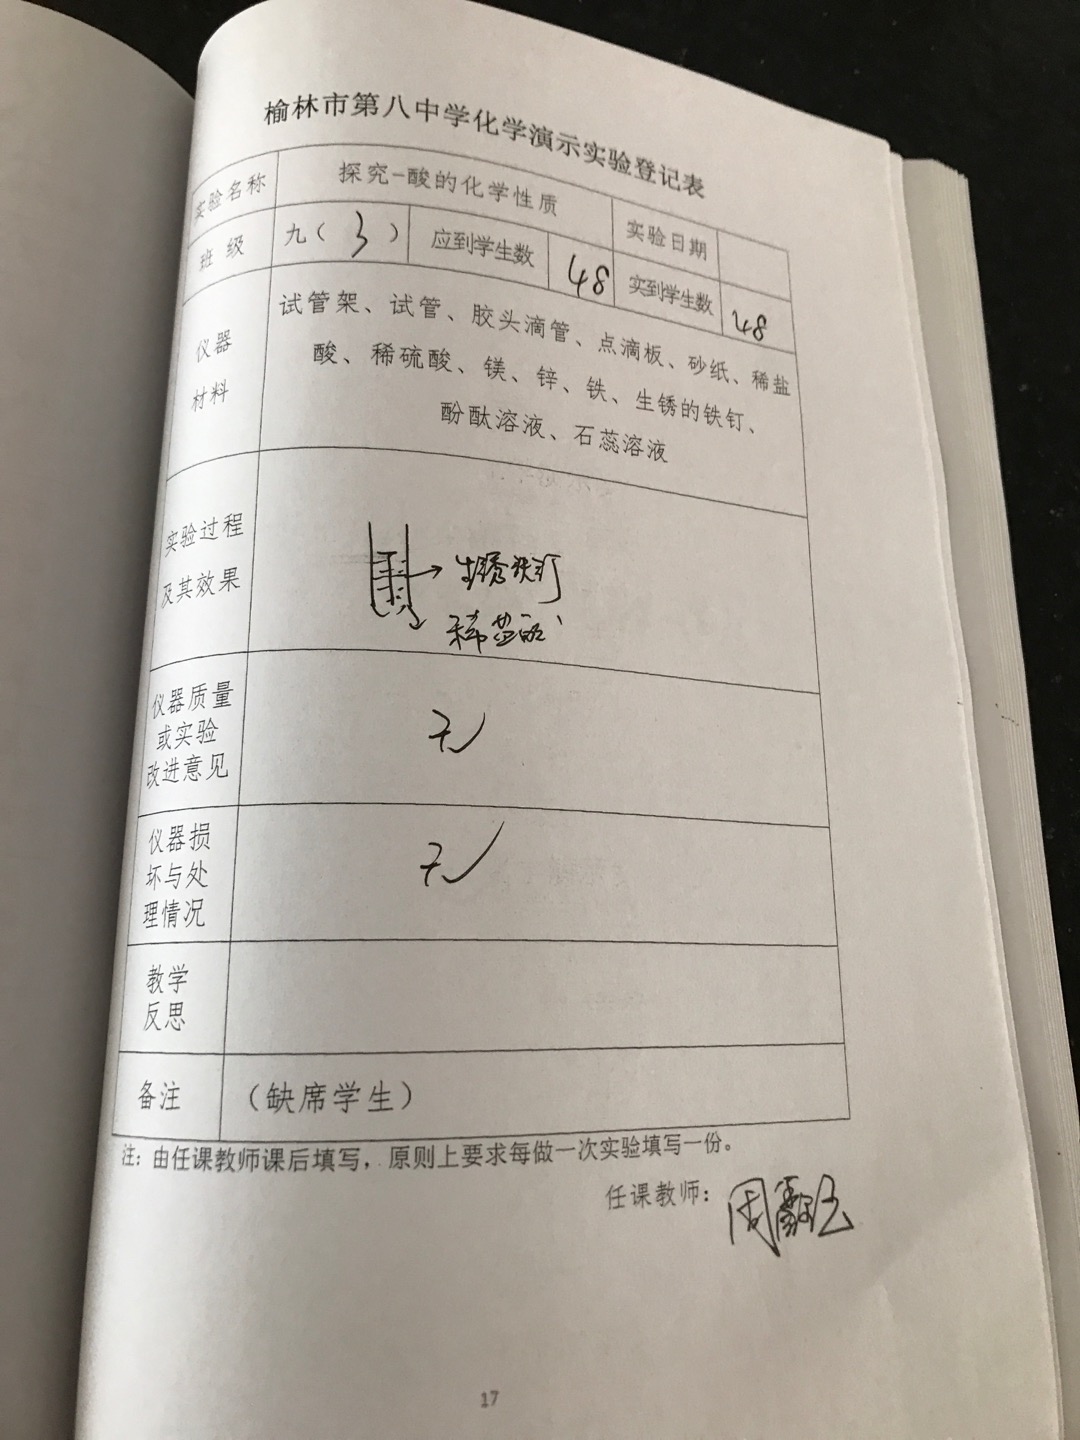 榆林市第八中学化学演示实验登记表
实验名称 探究-酸的化学性质 实验日期
班级 九（3） 应到学生数 48 实到学生数 48
仪器
材料
试管架、试管、胶头滴管、点滴板、砂纸、稀盐
酸、稀硫酸、镁、锌、铁、生锈的铁钉、
酚酞溶液、石蕊溶液
实验过程
及其效果
生锈铁钉
稀盐酸
仪器质量
或实验
改进意见
无
仪器损
坏与处
理情况
无
教学
反思
备注 （缺席学生）
注：由任课教师课后填写，原则上要求每做一次实验填写一份。
任课教师：周
17